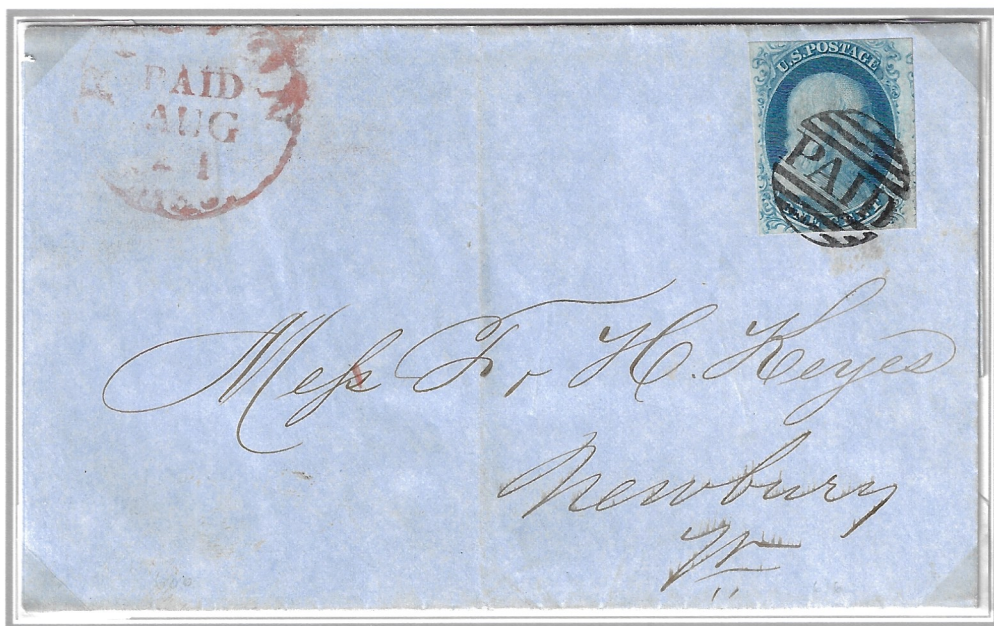 PAID
AUG
1
U.S.POSTAGE
PAID
Mess F. H. Keyes
Newbury
Vt